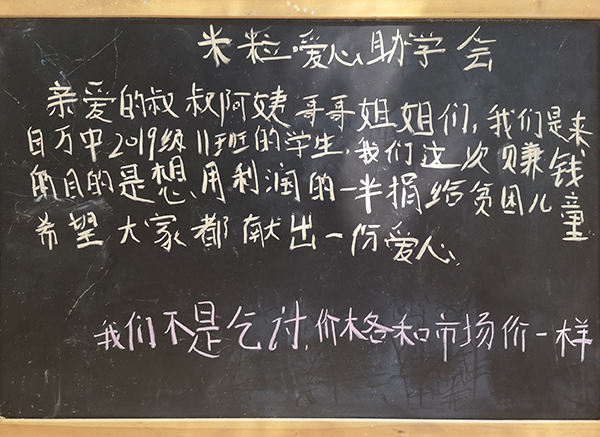 米粒爱心助学会
亲爱的叔叔阿姨哥哥姐姐们,我们是来
自万中2019级11班的学生.我们这次赚钱
的目的是想,用利润的一半捐给贫困儿童
希望大家都献出一份爱心
我们不是乞讨,价格和市场价一样